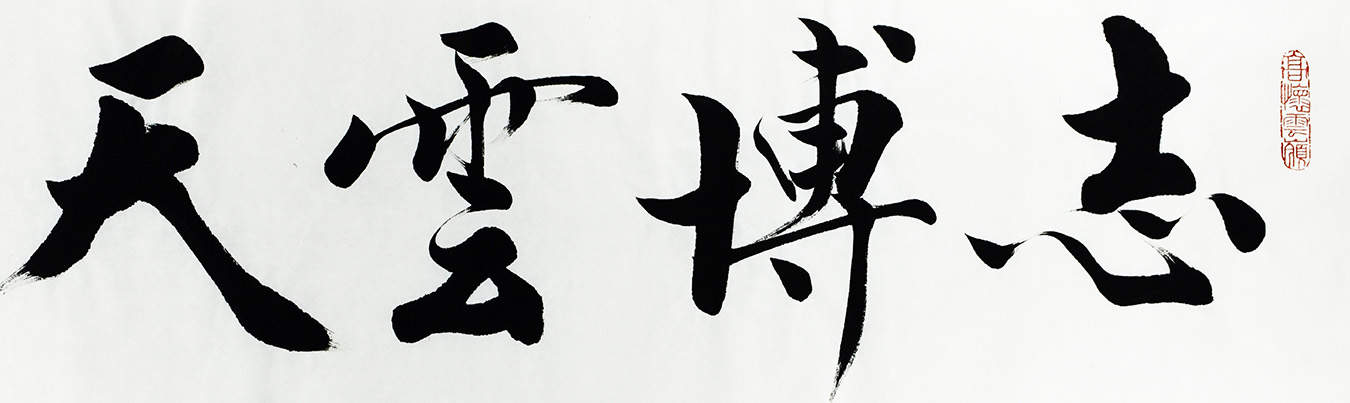 志博雲天